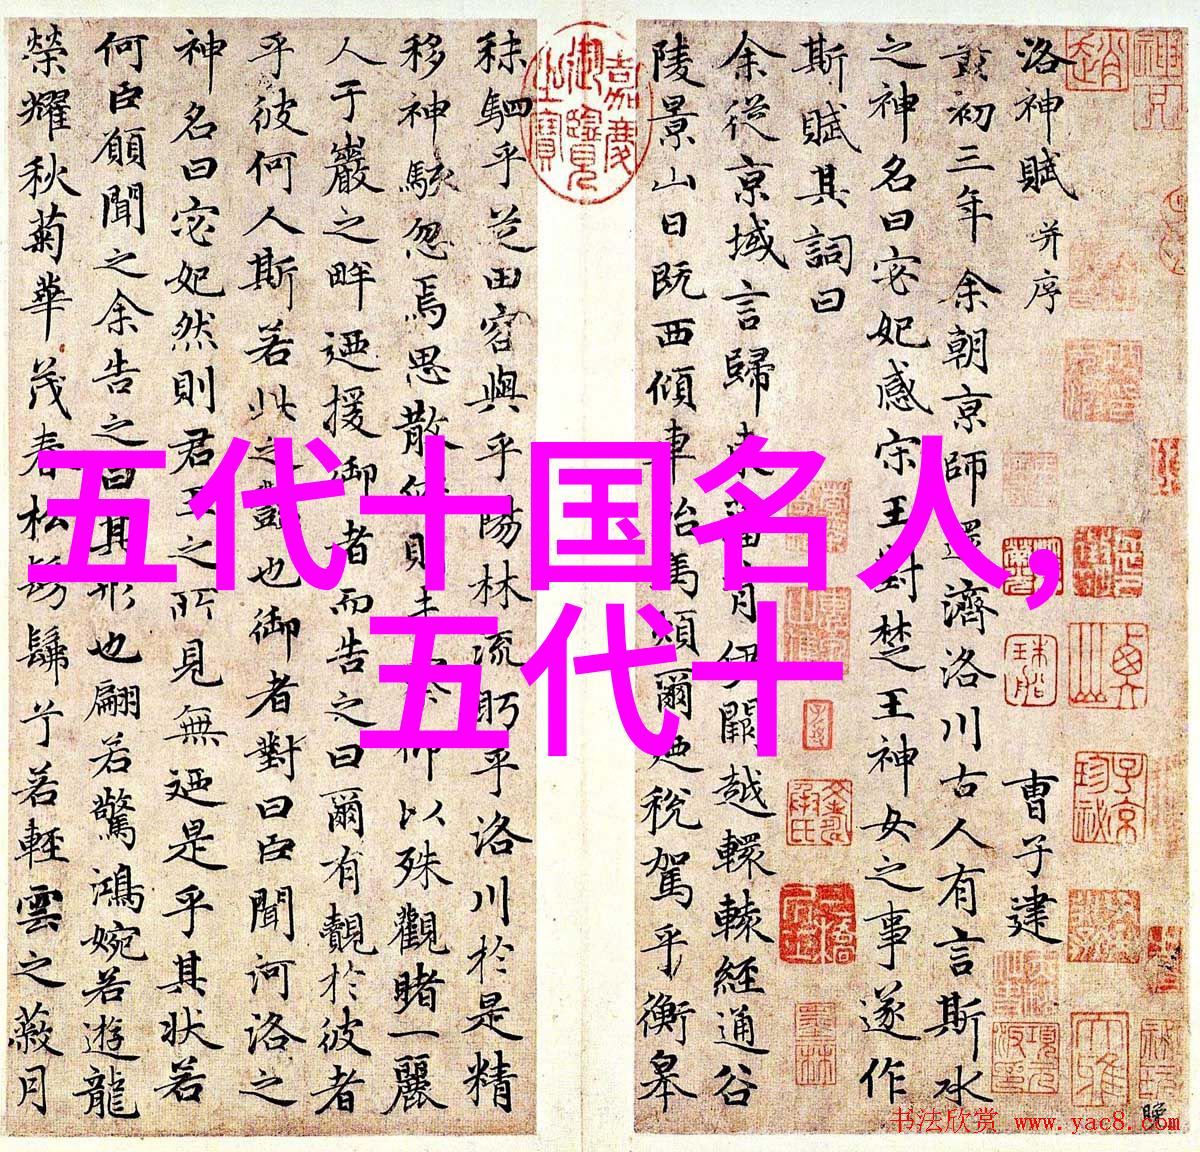 洛神賦 并序 曹子建
初三年余朝京師還濟洛川古人有言斯水
之神名曰宓妃感宋王對楚王神女之事遂作
斯賦其詞曰
余從京域言歸東藩背伊闕越轘轅經通谷
陵景山日既西傾車殆馬煩爾迺稅駕乎衡皋
秣駟乎芝田容與乎陽林流眄乎洛川於是精
移神駭忽焉思散俯則未察仰以殊觀睹一麗
人于巖之畔迺援御者而告之曰爾有覿於彼者
乎彼何人斯若此之豔也御者對曰臣聞河洛之
神名曰宓妃然則君王之所見無迺是乎其狀若
何臣願聞之余告之曰其形也翩若驚鴻婉若遊龍
榮耀秋菊華茂春松髣髴兮若輕雲之蔽月
嘉慶御覽之寶
五代十国名人,
五代十
书法欣赏 www.yac8.com